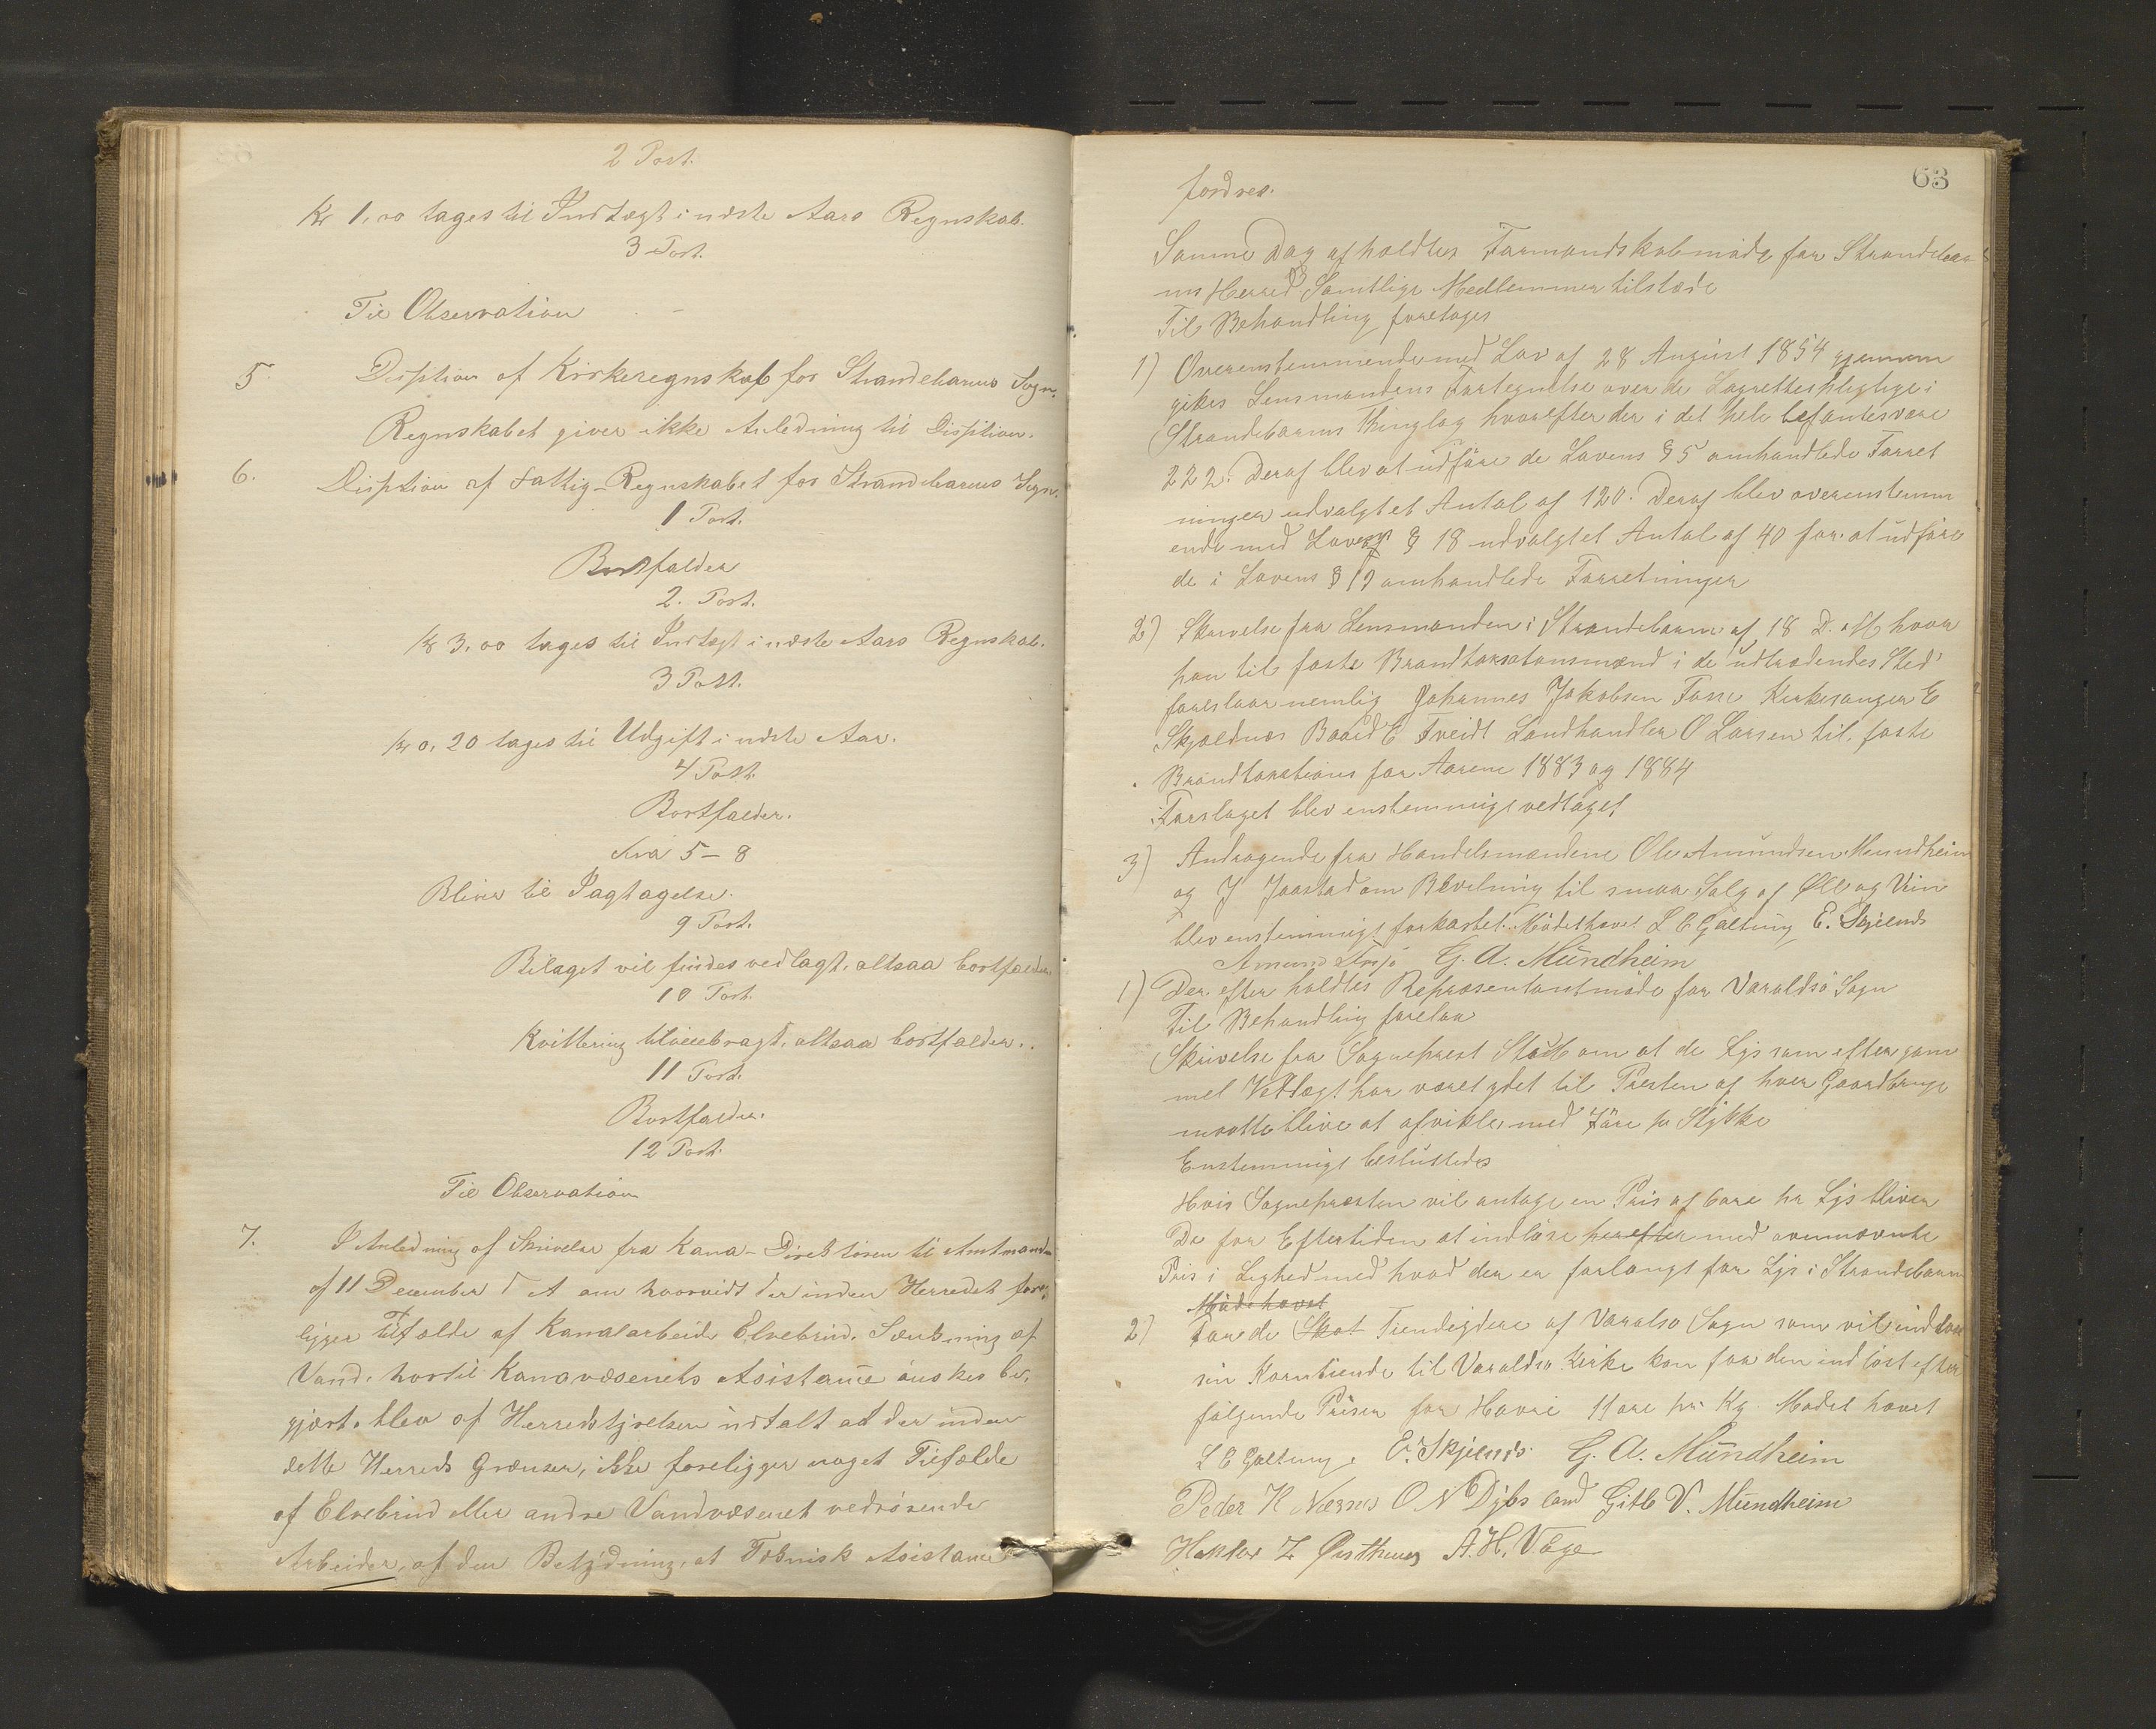 2 Post.
Kr 1,00 tages til Indtægt i næste Aars Regnskab.
3 Post.
Til Observation
5. Desition af Kirkeregnskab for Strandebarms Sogn.
Regnskabet giver ikke Anledning til Desition.
6. Desition af Fattig-Regnskabet for Strandebarms Sogn.
1 Post.
Bortfalder
2. Post.
Kr 3,00 tages til Indtægt i næste Aars Regnskab.
3 Post.
Kr 0,20 tages til Udgift i næste Aar.
4 Post.
Bortfalder.
Fra 5-8
Bliver til Iagtagelse.
9 Post.
Bilaget vil findes vedlagt, altsaa bortfalder
10 Post.
Kvittering tilveiebragt, altsaa bortfalder.
11 Post.
Bortfalder.
12 Post.
Til Observation
7. I Anledning af Skrivelse fra Kana-Direktøren til Amtmanden
af 11 December d A om hvorvidt der inden Herredet fore-
ligger Tilfælde af Kanalarbeide Elvebrud, Sænkning af
Vand, hortil Kanavæsenets Asistance önskes be-
gjært, blev af Herredstyrelsen üdtalt at der inden
dette Herreds Grænser, ikke foreligger noget Tilfælde
af Elvebrud eller andre Vandvæsenet vedrörende
Arbeider, af den Betydning, at Teknisk Asistance
63
fordres.
Samme Dag afholdtes Formandskabmöde for Strandebar
ms Herred Samtlige Medlemmer tilstæde
Til Behandling foretages
1) Overenstemmende med Lov af 28 August 1854 gjennem
gikes Lensmandens Fortegnelse over de Lagrettespligtige i
Strandebarms Thinglag hvorefter der i det hele befantes være
222. Deraf blev at udföre de Lovens § 5 omhandlede Forret
ninger udvalgt et Antal af 120. Deraf blev overenstemm
ende med Lovens § 18 udvalgt et Antal af 40 for at udföre
de i Lovens § 19 omhandlede Forretninger
2) Skrivelse fra Lensmanden i Strandebarm af 18 D. M hvor
han til faste Brandtaxationsmænd i de udtrædendes Sted
foreslaar nemlig Johannes Jakobsen Fosse Kirkesanger E
Skjeldnæs Baard E Tveidt Landhandler O Larsen til faste
Brandtaxations for Aarene 1883 og 1884
Forslaget blev enstemmigt vedtaget
3) Andragende fra Handelsmændene Ole Amündsen Mundheim
og J Jaastad om Bevilning til smaa Salg af Øll og Vin
blev enstemmigt forkastet. Mödet hævet L E Galtung E. Skjelnds
Amund G. A. Mündheim
1) Der efter holdtes Repræsentantmöde for Varaldsö Sogn
Til Behandling forelaa
Skrivelse fra Sogneprest om at de Lys som efter gam
mel Vedtægt har været ydet til Presten af hver Gaardbruge
maatte blive at afvikle med Öre pr Stykke
Enstemmigt besluttedes
Hvis Sognepræsten vil antage en Pris af 6 öre pr Lys bliver
De for Eftertiden at indlöse herefter med ovennævnte
Pris i Lighed med hvad der er forlangt for Lys i Strandebarm
Möde hævet
2) For de Skat Tiendeydere af Varalsö Sogn som vil indlöse
sin Korntiende til Varaldsö Kirke kan faa den indlöst efter
fölgende Priser for Havre 11 öre pr. Kg Mödet hævet
L E Galtung. E. Skjelnds G. A. Mündheim
Peder H Næsses O N Djbsland Gitle V. Mündheim
Haktor Z Østhuus A. H. Våge